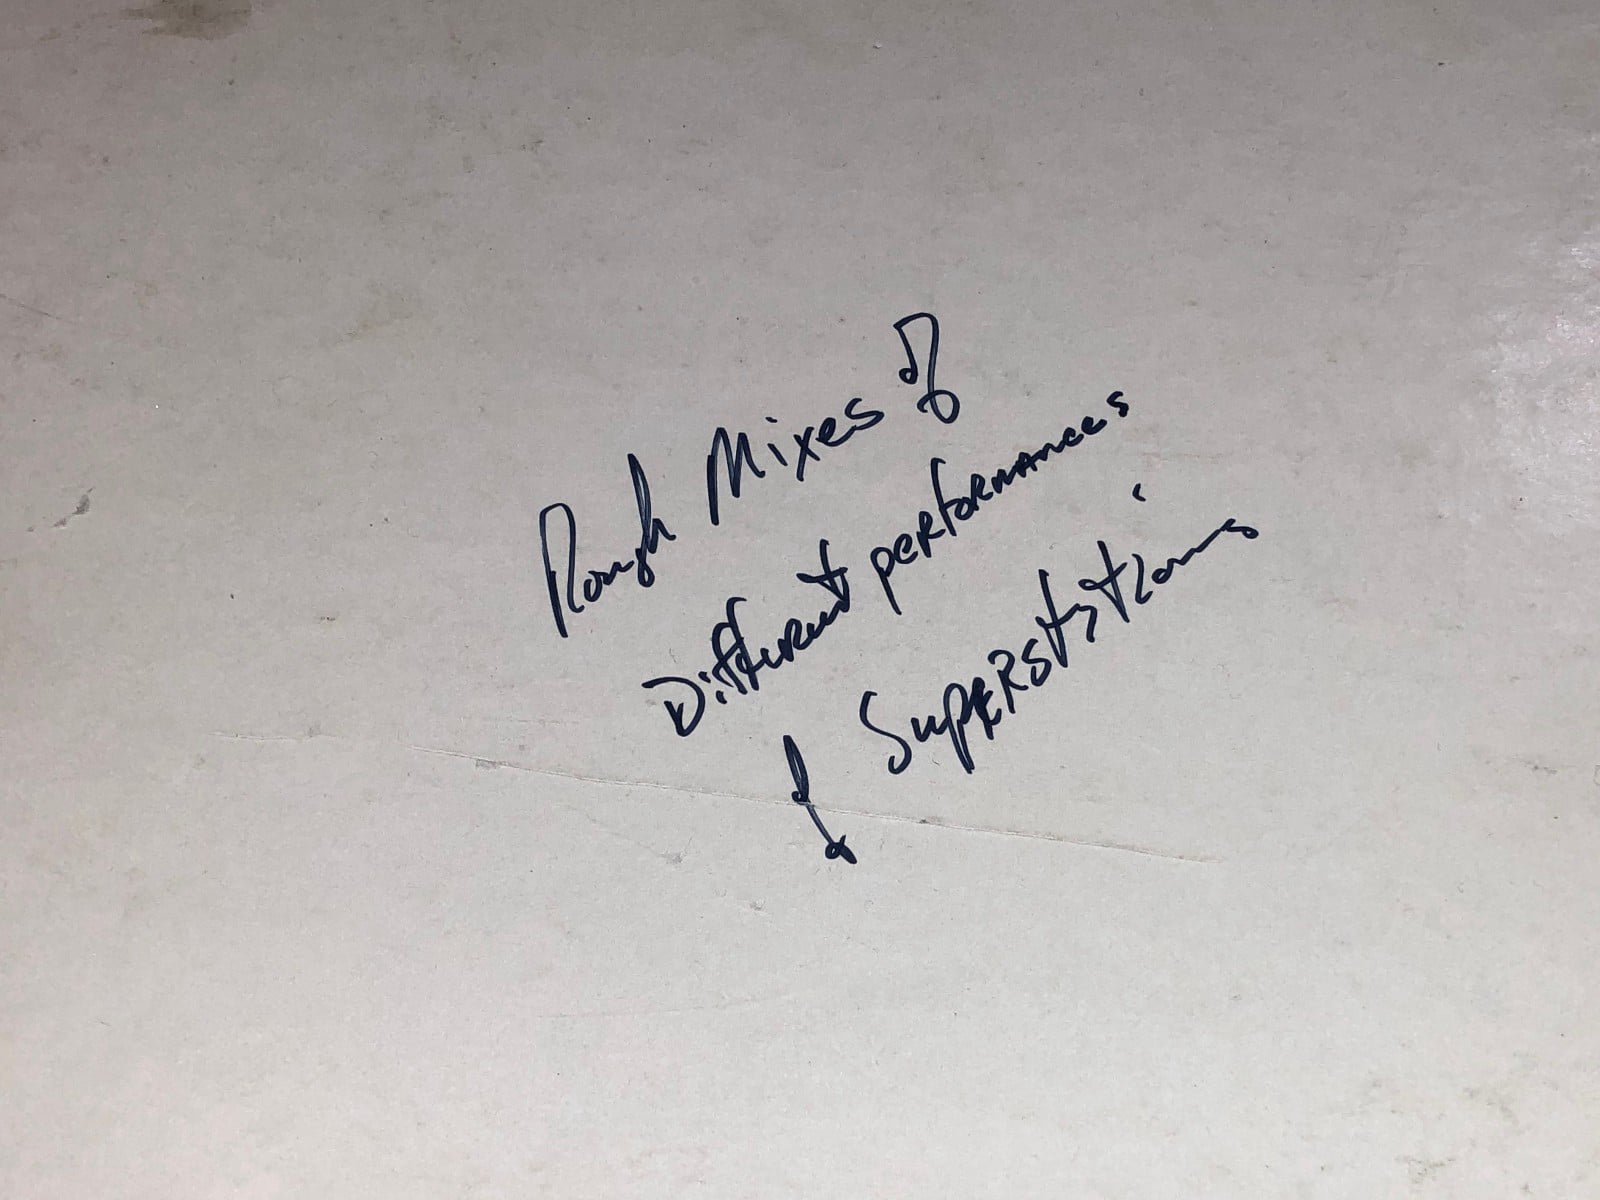 Rough Mixes of
Different performances
of Superstitions